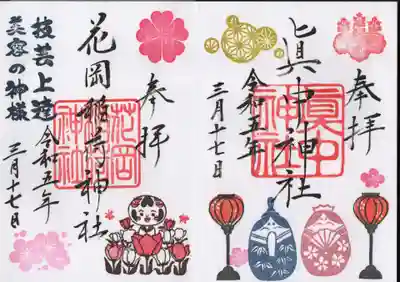 奉拝
眞中神社
眞中
神社
令和五年
三月十七日
奉拝
花岡稲荷神社
花岡
神社
技芸上達
芙蓉の神様
令和五年
三月十七日